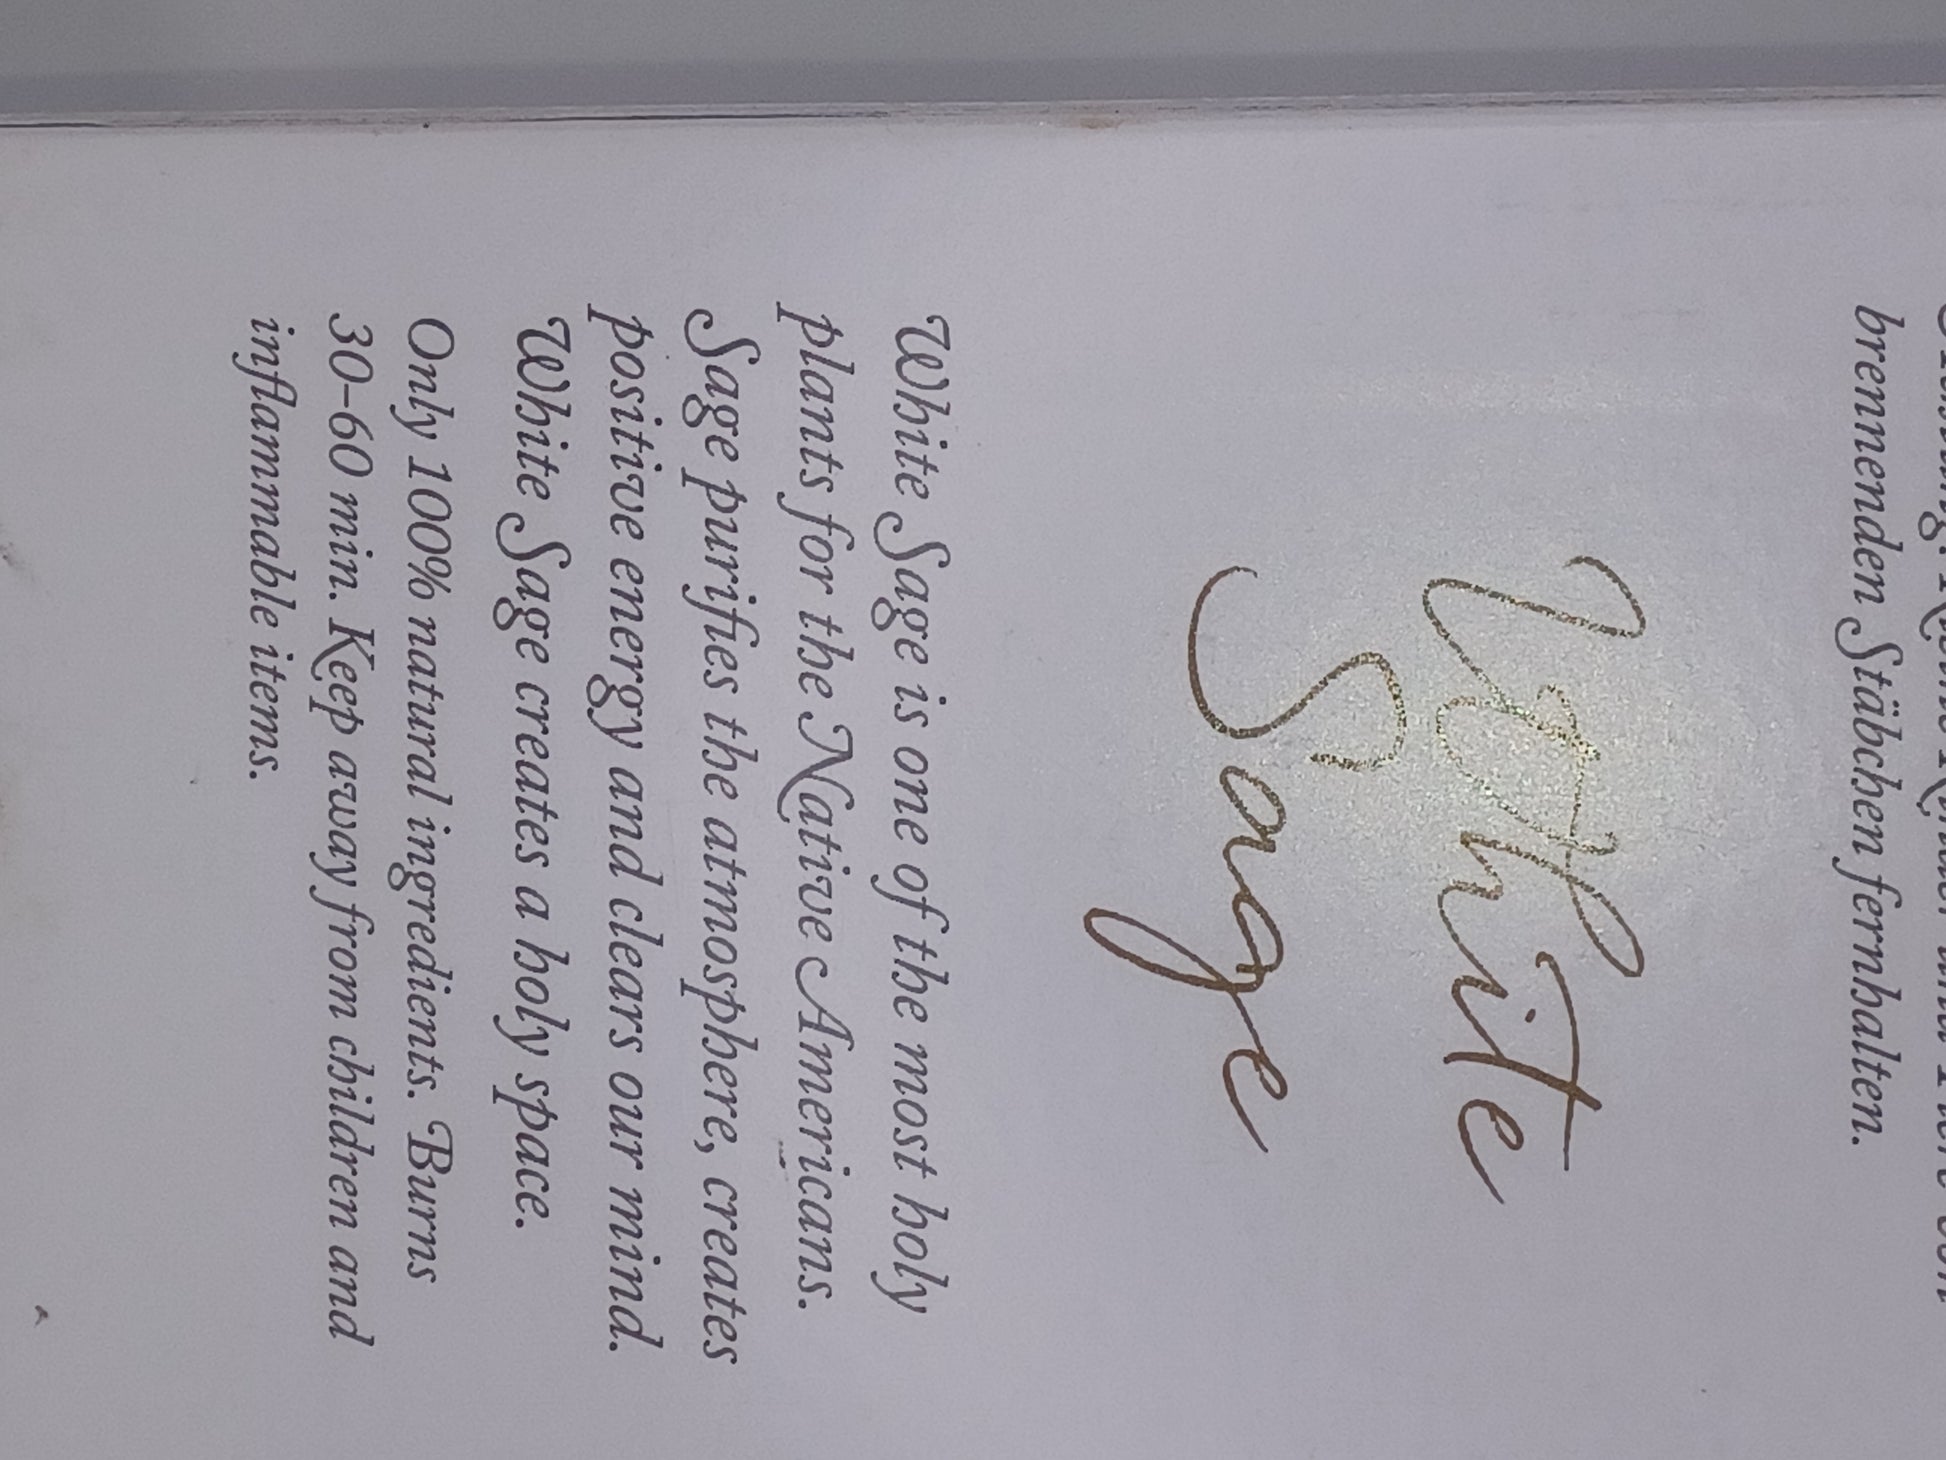 brennenden Stäbchen fernhalten.
White
Sage
White Sage is one of the most holy
plants for the Native Americans.
Sage purifies the atmosphere, creates
positive energy and clears our mind.
White Sage creates a holy space.
Only 100% natural ingredients. Burns
30-60 min. Keep away from children and
inflammable items.